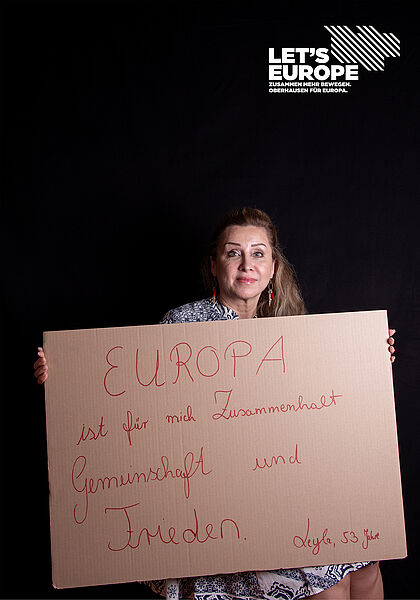 LET'S
EUROPE
ZUSAMMEN MEHR BEWEGEN.
OBERHAUSEN FÜR EUROPA.
EUROPA
ist für mich Zusammenhalt
Gemeinschaft und
Frieden.
Leyla, 53 Jahre